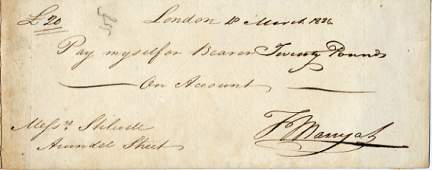 £20 London 18 March 1826
Pay myself or Bearer Twenty Pounds
On Account
Messrs Stilwell
Arundel Street
F Marryat